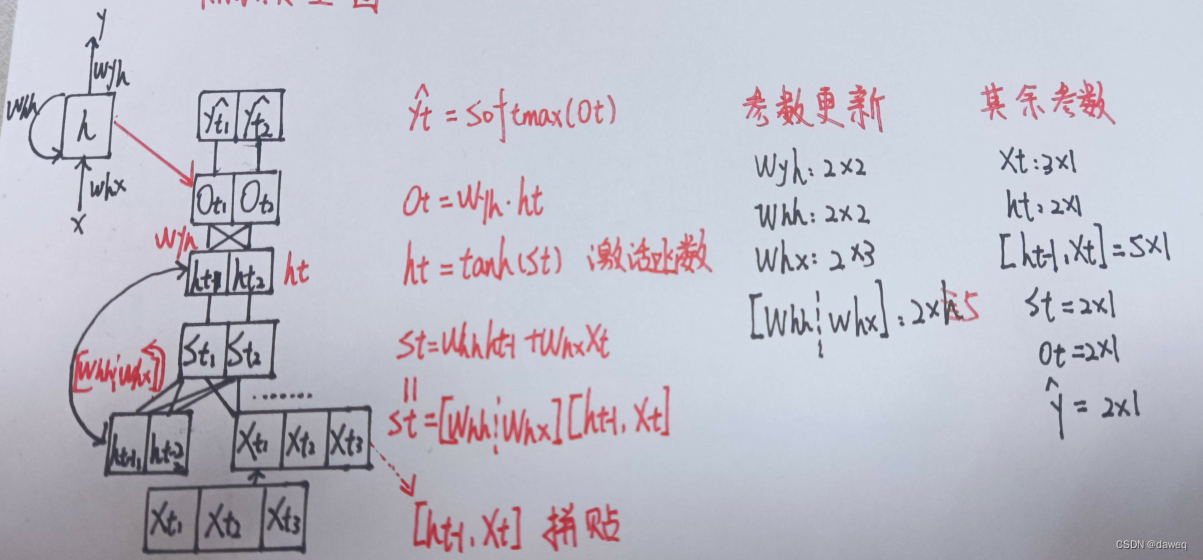 y
Wyh
Whh
h
Whx
X
ŷt1 ŷt2
Ot1 Ot2
Wyh
ht1 ht2 ht
St1 St2
[Whh¦Whx]
ht-1,1 ht-1,2
Xt1 Xt2 Xt3
Xt1 Xt2 Xt3
ŷt = softmax(Ot)
Ot = Wyh·ht
ht = tanh(St) 激活函数
St = Whhht-1 + WhxXt
St = [Whh¦Whx][ht-1, Xt]
[ht-1, Xt] 拼贴
参数更新
Wyh: 2×2
Whh: 2×2
Whx: 2×3
[Whh¦Whx]: 2×5
其余参数
Xt: 3×1
ht: 2×1
[ht-1, Xt] = 5×1
St = 2×1
Ot = 2×1
ŷ = 2×1
CSDN @daweq